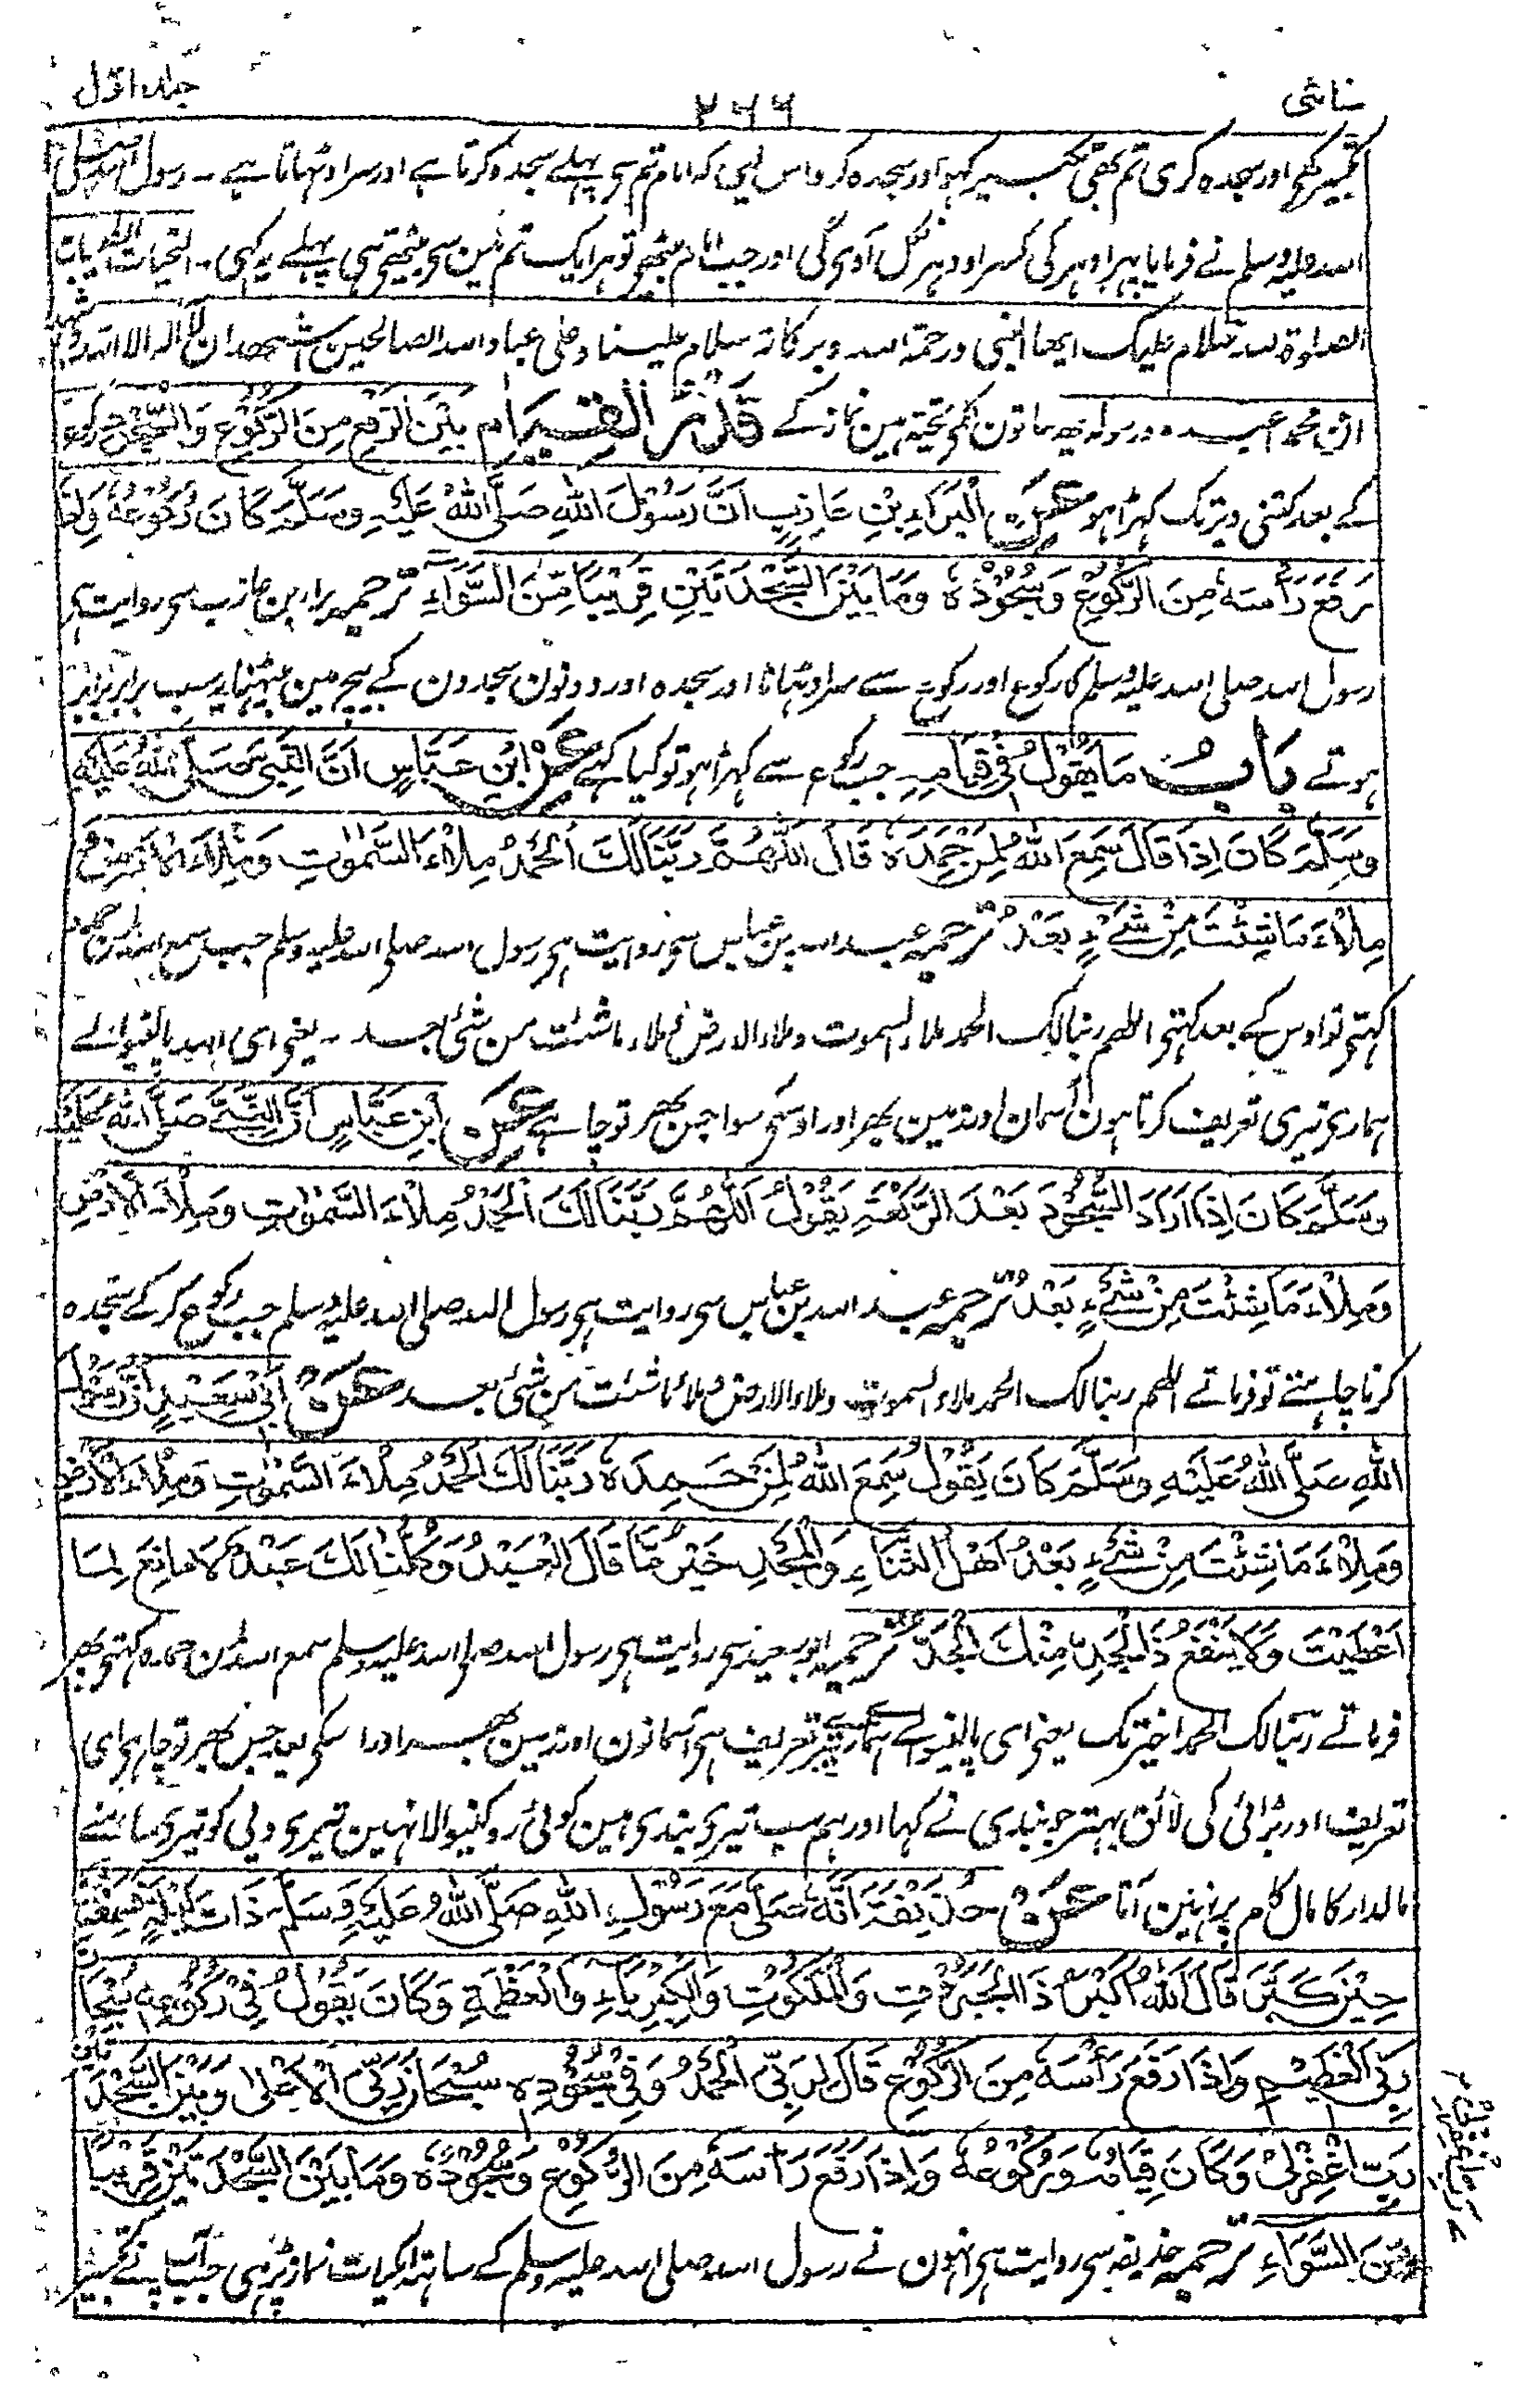 نسائی
۲۶۶
جلد اول
تکبیر کہے اور سجدہ کری تم بھی تکبیر کہو اور سجدہ کرو اس لیی کہ امام تم سی پہلے سجدہ کرتا ہے اور سر اوٹھاتا ہے ۔ رسول اللہ صلی
اللہ علیہ وسلم نے فرمایا پہر اودہر کی کسر اودہر نکل آوی گی اور جب امام بیٹھے تو ہر ایک تم مین سی بیٹھتی ہی پہلے یہ کہی ۔ التحیات الطیبات
الصلوۃ للہ سلام علیک ایھا النبی ورحمۃ اللہ وبرکاتہ سلام علینا وعلی عباد اللہ الصالحین اشھدان لا الہ الا اللہ واشھد
ان محمدا عبدہ ورسولہ یہ ساتون کلمی تحیۃ ہین نماز کے قَدْرُ الْقِیَامِ بَیْنَ الرَّفْعِ مِنَ الرُّکُوْعِ وَالسُّجُوْدِ رکوع
کے بعد کتنی دیر تک کہڑا ہو عَنِ الْبَرَاءِ بْنِ عَازِبٍ اَنَّ رَسُوْلَ اللّٰہِ صَلَّی اللّٰہُ عَلَیْہِ وَسَلَّمَ کَانَ رُکُوْعُہٗ وَاِذَا
رَفَعَ رَأْسَہٗ مِنَ الرُّکُوْعِ وَسُجُوْدُہٗ وَمَا بَیْنَ السَّجْدَتَیْنِ قَرِیْبًا مِّنَ السَّوَاءِ ترجمہ براء بن عازب سی روایت ہی
رسول اللہ صلی اللہ علیہ وسلم کا رکوع اور رکوع سے سر اوٹھانا اور سجدہ اور دونون سجدون کے بیچ مین بیٹھنا یہ سب برابر برابر
ہوتے بَابُ مَا یَقُوْلُ فِیْ قِیَامِہٖ جب رکوع سے کہڑا ہو تو کیا کہے عَنْ ابْنِ عَبَّاسٍ اَنَّ النَّبِیَّ صَلَّی اللّٰہُ عَلَیْہِ
وَسَلَّمَ کَانَ اِذَا قَالَ سَمِعَ اللّٰہُ لِمَنْ حَمِدَہٗ قَالَ اَللّٰھُمَّ رَبَّنَا لَکَ الْحَمْدُ مِلْاءَ السَّمٰوٰتِ وَمِلْاءَ الْاَرْضِ وَ
مِلْاءَ مَا شِئْتَ مِنْ شَیْءٍ بَعْدُ ترجمہ عبد اللہ بن عباس سی روایت ہی رسول اللہ صلی اللہ علیہ وسلم جب سمع اللہ لمن حمدہ
کہتی تو اوس کے بعد کہتی اللھم ربنا لک الحمد ملاء السموت وملاء الارض وملاء ما شئت من شئ بعد ۔ یعنی ای اللہ پالنیوالے
ہماری تیری تعریف کرتا ہون آسمان اور زمین بھر اور اوسکی سوا جس بھر تو چاہے عَنْ ابْنِ عَبَّاسٍ اَنَّ النَّبِیَّ صَلَّی اللّٰہُ عَلَیْہِ
وَسَلَّمَ کَانَ اِذَا اَرَادَ السُّجُوْدَ بَعْدَ الرَّکْعَۃِ یَقُوْلُ اَللّٰھُمَّ رَبَّنَا لَکَ الْحَمْدُ مِلْاءَ السَّمٰوٰتِ وَمِلْاءَ الْاَرْضِ
وَمِلْاءَ مَا شِئْتَ مِنْ شَیْءٍ بَعْدُ ترجمہ عبد اللہ بن عباس سی روایت ہی رسول اللہ صلی اللہ علیہ وسلم جب رکوع کر کے سجدہ
کرنا چاہتے تو فرماتے اللھم ربنا لک الحمد ملاء السموت وملاء الارض وملاء ما شئت من شئ بعد عَنْ اَبِیْ سَعِیْدٍ اَنَّ رَسُوْلَ
اللّٰہِ صَلَّی اللّٰہُ عَلَیْہِ وَسَلَّمَ کَانَ یَقُوْلُ سَمِعَ اللّٰہُ لِمَنْ حَمِدَہٗ رَبَّنَا لَکَ الْحَمْدُ مِلْاءَ السَّمٰوٰتِ وَمِلْاءَ الْاَرْضِ
وَمِلْاءَ مَا شِئْتَ مِنْ شَیْءٍ بَعْدُ اَھْلَ الثَّنَاءِ وَالْمَجْدِ خَیْرُ مَا قَالَ الْعَبْدُ وَکُلُّنَا لَکَ عَبْدٌ لَا مَانِعَ لِمَا
اَعْطَیْتَ وَلَا یَنْفَعُ ذَا الْجَدِّ مِنْکَ الْجَدُّ ترجمہ ابو سعید سی روایت ہی رسول اللہ صلی اللہ علیہ وسلم سمع اللہ لمن حمدہ کہتی پھر
فرماتے ربنا لک الحمد اخیر تک یعنی ای پالنیوالے ہماری تیری تعریف ہی آسمانون اور زمین بھر اور اسکی بعد جس بھر تو چاہی ای
تعریف اور بڑائی کی لائق بہتر جو بندی نے کہا اور ہم سب تیری بندی ہین کوئی روکنیوالا نہین تیری دی کو تیری سامنے
مالدار کا مال کام پر نہین آتا عَنْ حُذَیْفَۃَ اَنَّہٗ صَلّٰی مَعَ رَسُوْلِ اللّٰہِ صَلَّی اللّٰہُ عَلَیْہِ وَسَلَّمَ ذَاتَ لَیْلَۃٍ فَسَمِعَہٗ
حِیْنَ کَبَّرَ قَالَ اَللّٰہُ اَکْبَرُ ذَا الْجَبَرُوْتِ وَالْمَلَکُوْتِ وَالْکِبْرِیَاءِ وَالْعَظْمَۃِ وَکَانَ یَقُوْلُ فِیْ رُکُوْعِہٖ سُبْحَانَ
رَبِّیَ الْعَظِیْمِ وَاِذَا رَفَعَ رَأْسَہٗ مِنَ الرُّکُوْعِ قَالَ لِرَبِّیَ الْحَمْدُ وَفِیْ سُجُوْدِہٖ سُبْحَانَ رَبِّیَ الْاَعْلٰی وَبَیْنَ السَّجْدَتَیْنِ
رَبِّ اغْفِرْلِیْ وَکَانَ قِیَامُہٗ وَرُکُوْعُہٗ وَاِذَا رَفَعَ رَأْسَہٗ مِنَ الرُّکُوْعِ وَسُجُوْدُہٗ وَمَا بَیْنَ السَّجْدَتَیْنِ قَرِیْبًا
مِّنَ السَّوَاءِ ترجمہ حذیفہ سی روایت ہی انہون نے رسول اللہ صلی اللہ علیہ وسلم کے ساتھ ایک رات نماز پڑہی جب آپ نے تکبیر